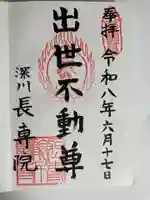 奉拝
令和八年六月十七日
出世不動尊
深川
長専院